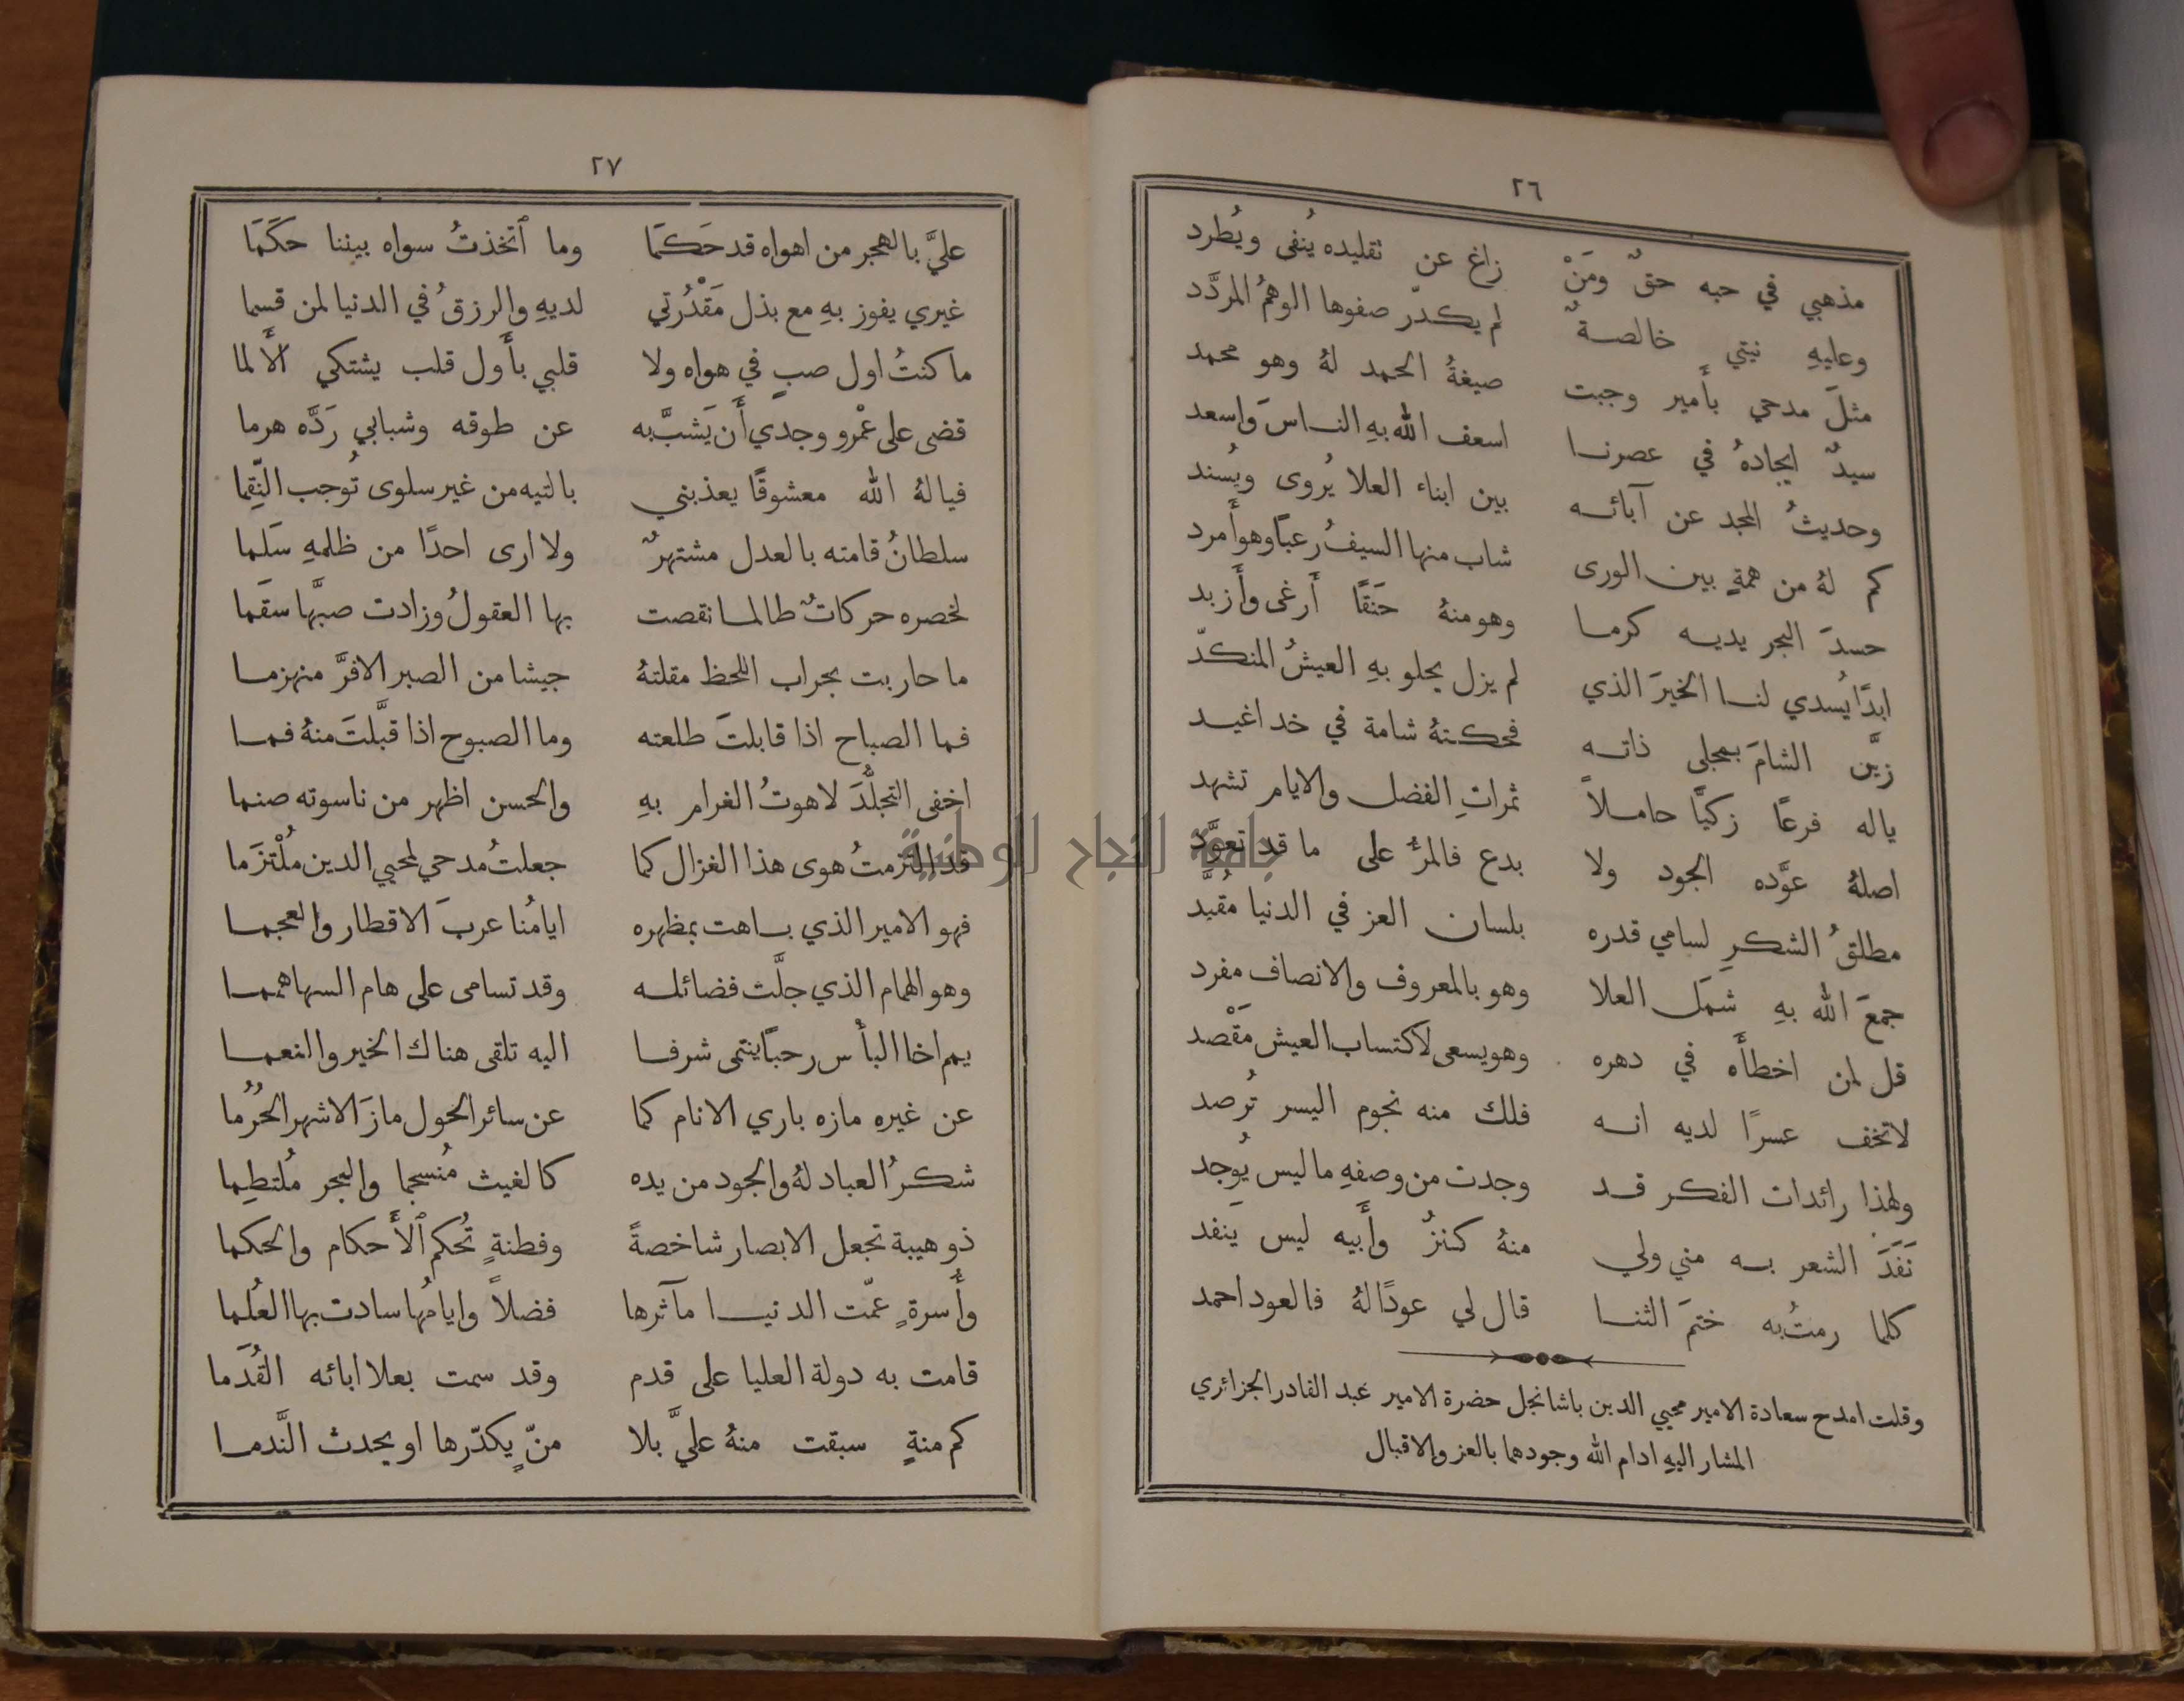 ٢٦
مذهبي في حبه حقٌ ومَنْ زاغ عن تقليده يُنفى ويُطرد
وعليهِ نيتي خالصةٌ لم يكدّر صفوها الوهمُ المردَّد
مثلَ مدحي بأمير وجبت صيغةُ الحمد لهُ وهو محمد
سيدٌ ايجادهُ في عصرنا اسعف الله بهِ الناسَ واسعد
وحديثُ المجد عن آبائه بين ابناء العلا يُروى ويُسند
كم لهُ من همةٍ بين الورى شاب منها السيفُ رعبًا وهو أَمرد
حسدَ البحر يديه كرما وهو منهُ حَنَقًا أَرغى وأَزبد
ابدًا يُسدي لنا الخيرَ الذي لم يزل يحلو بهِ العيشُ المنكدّ
زيَّن الشامَ بمجلى ذاته فحكتهُ شامة في خد اغيد
ياله فرعًا زكيًّا حاملاً ثمراتِ الفضل والايام تشهد
اصلهُ عوَّده الجود ولا بدع فالمرءُ على ما قد تعوَّد
مطلقُ الشكرِ لسامي قدره بلسان العز في الدنيا مُقيَّد
جمعَ الله بهِ شمَل العلا وهو بالمعروف والانصاف مفرد
قل لمن اخطأَه في دهره وهو يسعى لاكتساب العيش مَقْصد
لاتخف عسرًا لديه انه فلك منه نجوم اليسر تُرصد
ولهذا رائدات الفكر قد وجدت من وصفهِ ما ليس يُوجد
نَفَدَ الشعر به مني ولي منهُ كنزٌ وأَبيه ليس يَنفد
كلما رمتُ به ختمَ الثنا قال لي عودًا لهُ فالعود احمد
وقلت امدح سعادة الامير محيي الدين باشا نجل حضرة الامير عبد القادر الجزائري
المشار اليهِ ادام الله وجودهما بالعز والاقبال
٢٧
عليَّ بالهجر من اهواه قد حَكَمَا وما ٱتخذتُ سواه بيننا حكَمَا
غيري يفوز بهِ مع بذل مَقْدُرتي لديهِ والرزقُ في الدنيا لمن قسما
ما كنتُ اول صبٍ في هواه ولا قلبي بأَول قلب يشتكي الأَلما
قضى على عمْرو وجدي أَن يَشبَّ به عن طوقه وشبابي رَدَّه هرما
فيا لهُ الله معشوقًا يعذبني بالتيه من غير سلوى تُوجب النِّقما
سلطانُ قامته بالعدل مشتهرٌ ولا ارى احدًا من ظلمهِ سَلما
لخصره حركاتٌ طالما نقصت بها العقولُ وزادت صبَّها سقَما
ما حاربت بحراب اللحظ مقلتهُ جيشا من الصبر الا فرَّ منهزما
فما الصباح اذا قابلتَ طلعته وما الصبوح اذا قبَّلتَ منهُ فما
اخفى التجلُّدَ لاهوتُ الغرام بهِ والحسن اظهر من ناسوته صنما
قد التزمتُ هوى هذا الغزال كما جعلتُ مدحي لمحيي الدين مُلْتزَما
فهو الامير الذي باهت بمظهره ايامُنا عربَ الاقطار والعجما
وهو الهمام الذي جلَّت فضائله وقد تسامى على هام السها همما
يمم اخا البأس رحبًا ينتمى شرفا اليه تلقى هناك الخير والنعما
عن غيره مازه باري الانام كما عن سائر الحول مازَ الاشهر الحُرُما
شكرُ العباد لهُ والجود من يده كالغيث مُنسجما والبحر مُلتطِما
ذو هيبة تجعل الابصار شاخصةً وفطنةٍ تُحكم ٱلأَحكام والحكما
وأُسرةٍ عمّت الدنيا مآثرها فضلاً وايامُها سادت بها العُلما
قامت به دولة العليا على قدم وقد سمت بعلا ابائه القُدَما
كم منةٍ سبقت منهُ عليَّ بلا منّ يكدّرها او يحدث النَّدما
جامعة النجاح الوطنية